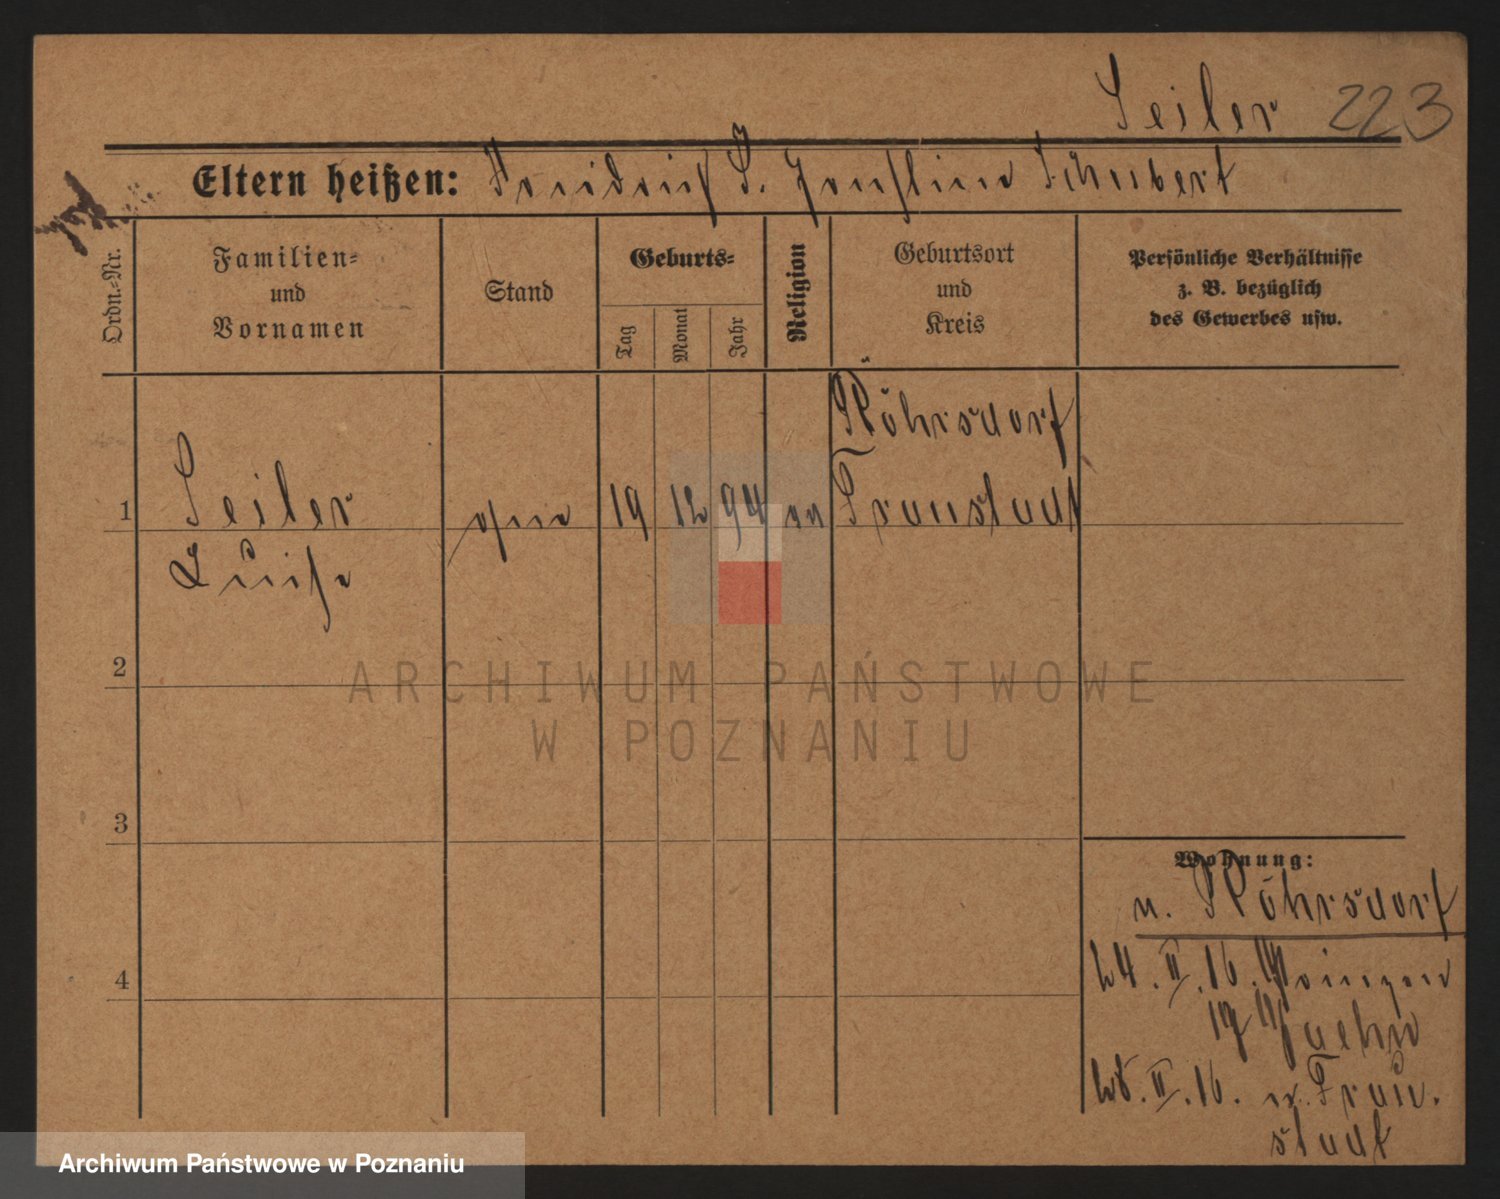 Seiler 223
Eltern heißen: Friedrich S. Pauline Schubert
Ordn.-Nr.
Familien-
und
Vornamen
Stand
Geburts-
Tag
Monat
Jahr
Religion
Geburtsort
und
Kreis
Persönliche Verhältnisse
z. B. bezüglich
des Gewerbes usw.
Röhrsdorf
1 Seiler 19 12 94 Fraustadt
Luise
2
3
4
Wohnung:
n. Röhrsdorf
24. II. 16.
17
28. II. 16. n. Frau-
stadt
ARCHIWUM PAŃSTWOWE
W POZNANIU
Archiwum Państwowe w Poznaniu